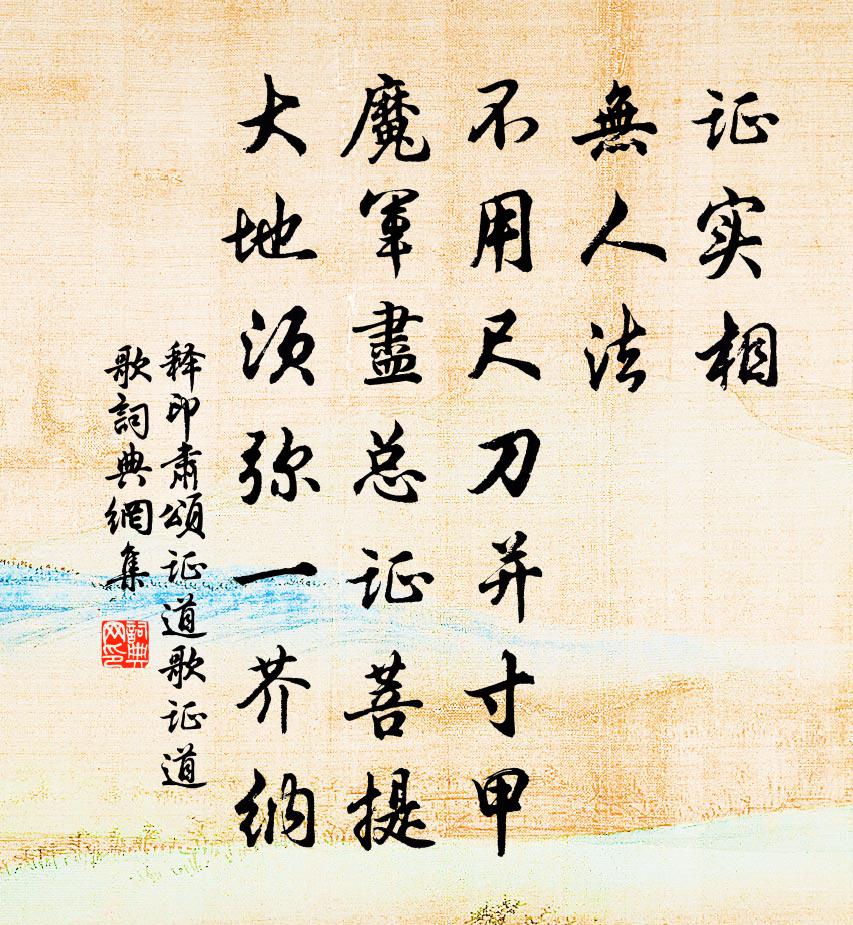 证实相
無人法
不用尺刀并寸甲
魔軍盡总证菩提
大地须弥一芥纳
释印肃頌证道歌证道
歌詞典網集
詞典网印